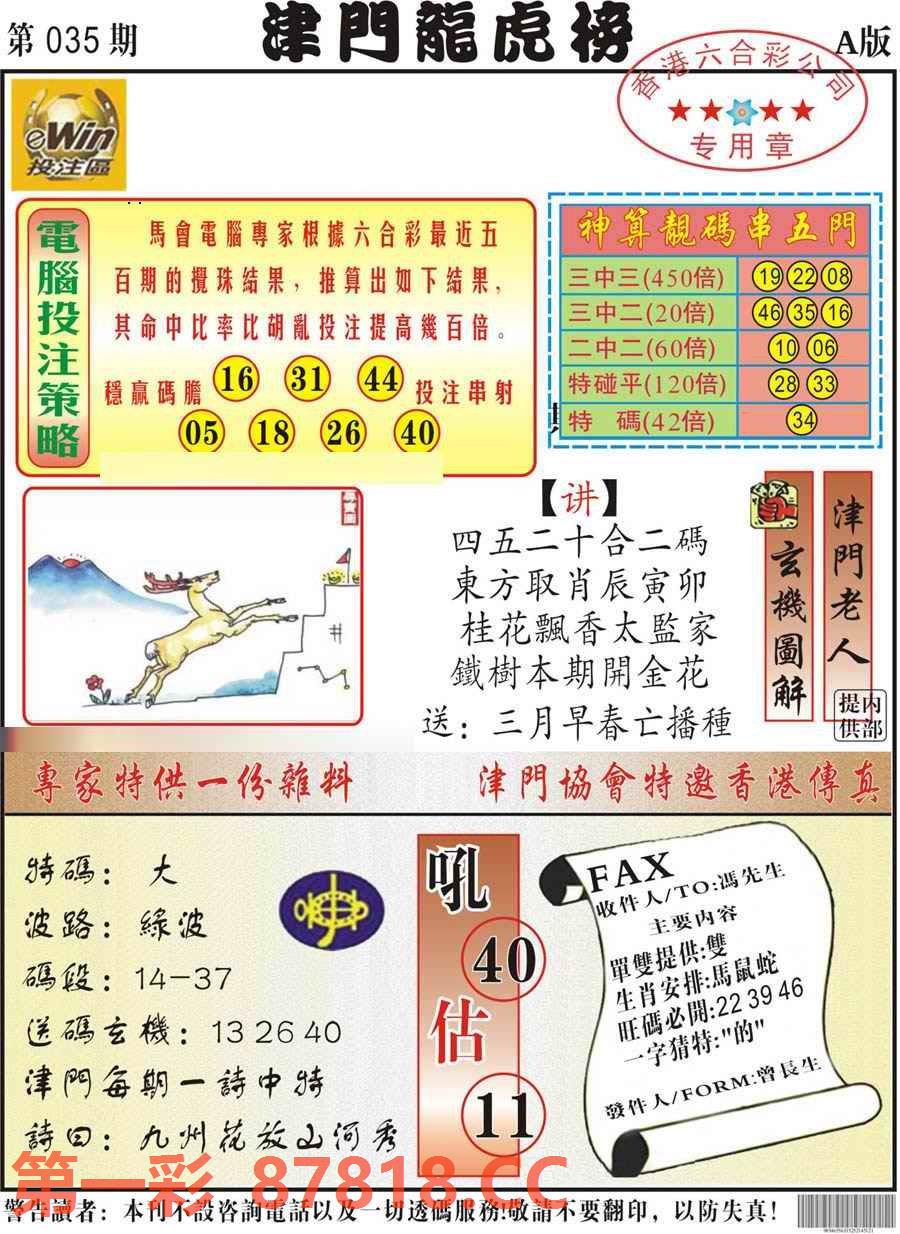 第 035 期
津門龍虎榜
A版
香港六合彩公司
专用章
eWin
投注區
電腦投注策略
馬會電腦專家根據六合彩最近五
百期的攪珠結果，推算出如下結果，
其命中比率比胡亂投注提高幾百倍。
穩贏碼膽 16 31 44 投注串射
05 18 26 40
神算靚碼串五門
三中三(450倍) 19 22 08
三中二(20倍) 46 35 16
二中二(60倍) 10 06
特碰平(120倍) 28 33
特 碼(42倍) 34
【讲】
四五二十合二碼
東方取肖辰寅卯
桂花飄香太監家
鐵樹本期開金花
送：三月早春亡播種
玄機圖解
津門老人
内部提供
專家特供一份雜料
津門協會特邀香港傳真
特碼：大
波路：綠波
碼段：14-37
送碼玄機：13 26 40
津門每期一詩中特
詩曰：九州花放山河秀
吼
40
估
11
FAX
收件人/TO:馮先生
主要内容
單雙提供:雙
生肖安排:馬鼠蛇
旺碼必開:22 39 46
一字猜特:"的"
發件人/FORM:曾長生
第一彩 87818.CC
警告讀者：本刊不設咨詢電話以及一切透碼服務!敬請不要翻印，以防失真!